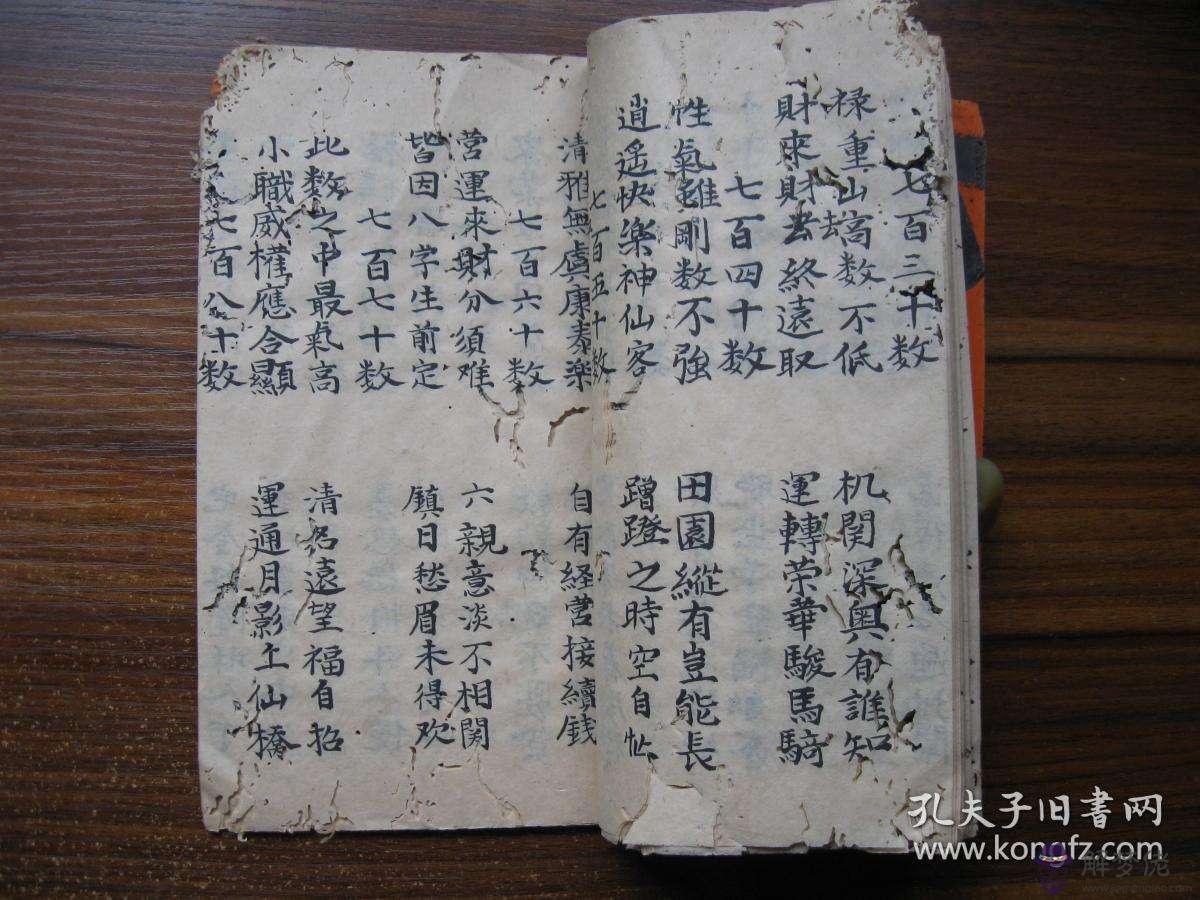 七百三十数
禄重山高数不低
机関深奥有誰知
財來財去終遠取
運轉荣華駿馬騎
七百四十数
性氣雖剛数不強
田園縱有豈能長
逍遙快樂神仙客
蹭蹬之時空自忙
七百五十数
清雅無虞康泰楽
自有経営接續銭
七百六十数
営運來財分须难
六親意淡不相関
皆因八字生前定
鎮日愁眉未得欢
七百七十数
此数之中最氣高
清名遠望福自招
小職威權應合顯
運通月影上仙橋
七百八十数
孔夫子旧書网
www.kongfz.com
解梦佬